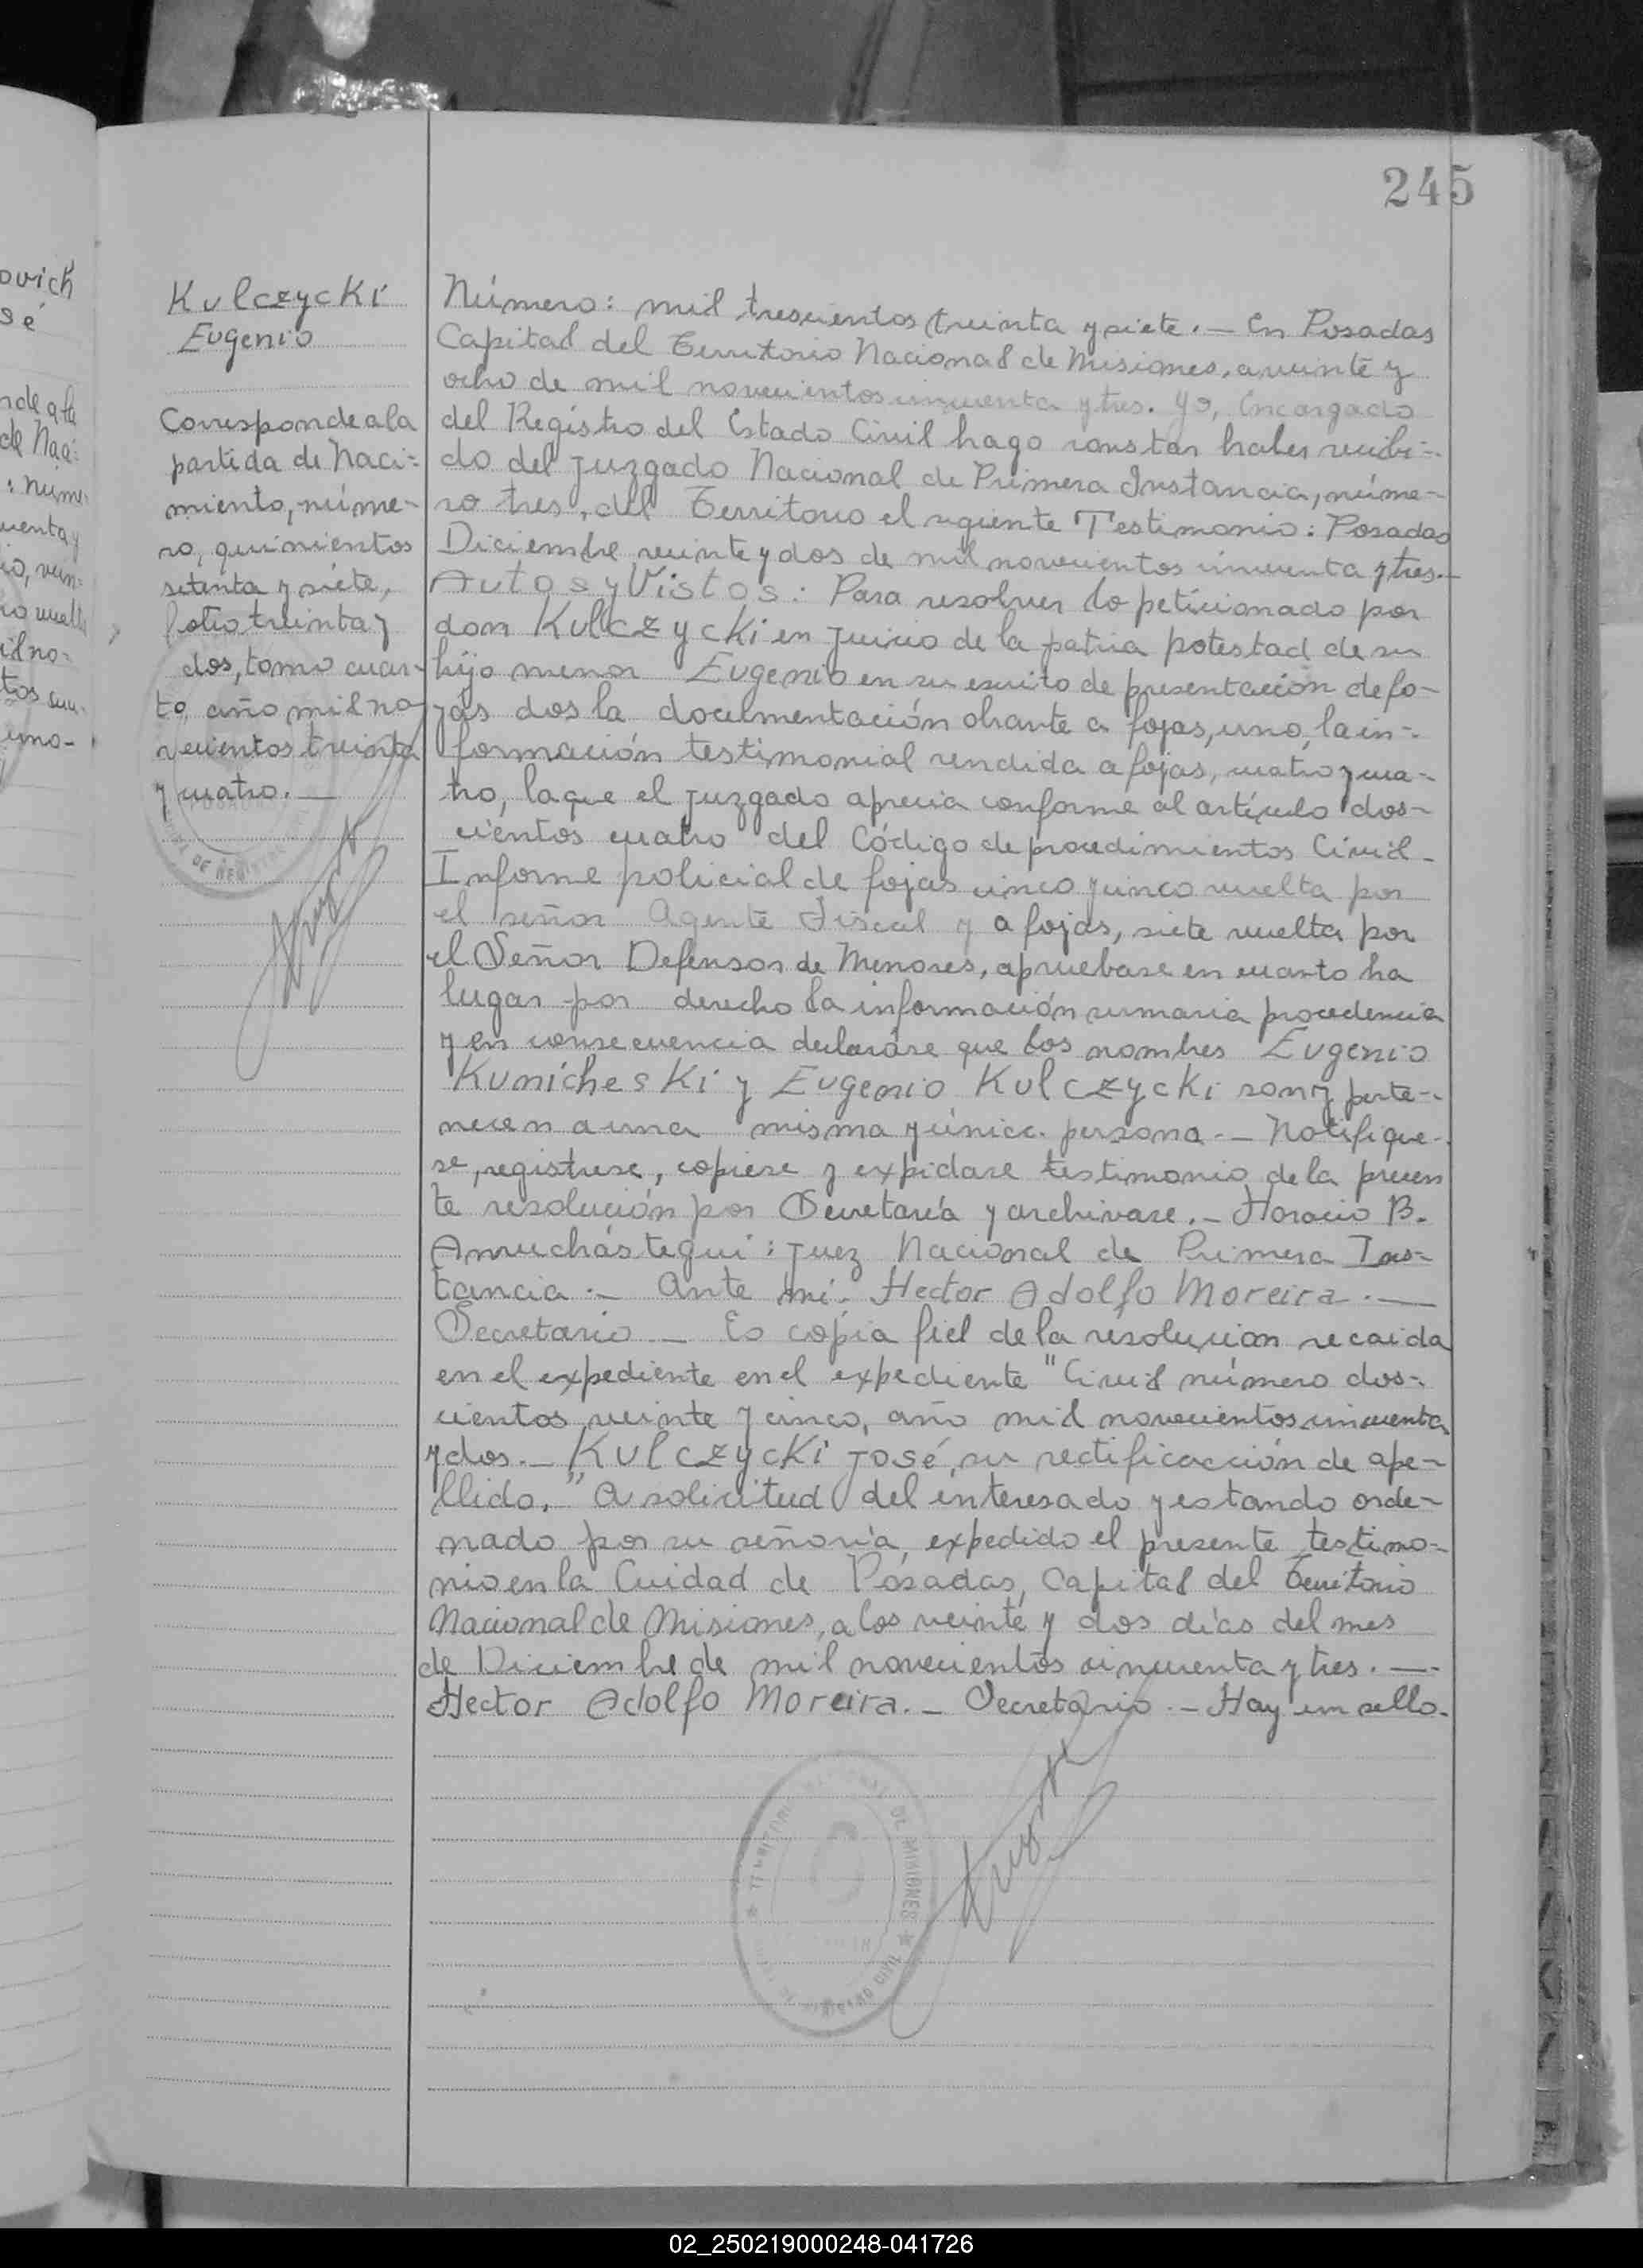 245
Kulczycki
Eugenio
Corresponde a la
partida de Naci=
miento, núme-
ro, quinientos
setenta y siete,
folio treinta y
dos, tomo cuar-
to, año mil no-
vecientos treinta
y cuatro. —
Número: mil trescientos treinta y siete. — En Posadas
Capital del Territorio Nacional de Misiones, a veinte y
ocho de mil novecientos cincuenta y tres. Yo, Encargado
del Registro del Estado Civil hago constar haber recibi-
do del Juzgado Nacional de Primera Instancia, núme-
ro tres, del Territorio el siguiente Testimonio: Posadas
Diciembre veinte y dos de mil novecientos cincuenta y tres.—
Autos y Vistos: Para resolver lo peticionado por
don Kulczycki en juicio de la patria potestad de su
hijo menor Eugenio en su escrito de presentación de fo-
jas dos la documentación obrante a fojas, uno, la in-
formación testimonial rendida a fojas, cuatro y cua-
tro, la que el juzgado aprecia conforme al artículo dos-
cientos cuatro del Código de procedimientos Civil -
Informe policial de fojas cinco y cinco vuelta por
el señor Agente Fiscal y a fojas, siete vuelta por
el Señor Defensor de Menores, apruebase en cuanto ha
lugar por derecho la información sumaria procedencia
y en consecuencia declaráse que los nombres Eugenio
Kunicheski y Eugenio Kulczycki son y perte-
necen a una misma y única persona. — Notifique-
se, registrese, copiese y expidase testimonio de la presen
te resolución por Secretaría y archivase. — Horacio B.
Amuchástegui: Juez Nacional de Primera Ins-
tancia. — Ante mí. Hector Adolfo Moreira. —
Secretario — Es copia fiel de la resolucion recaida
en el expediente en el expediente "Civil número dos-
cientos veinte y cinco, año mil novecientos cincuenta
y dos. — Kulczycki José, su rectificacción de ape-
llido." A solicitud del interesado y estando orde-
nado por su señoría, expedido el presente testimo-
nio en la Cuidad de Posadas, Capital del Territorio
Nacional de Misiones, a los veinte y dos días del mes
de Diciembre de mil novecientos cincuenta y tres. —
Hector Adolfo Moreira. — Secretario. — Hay un sello.
02_250219000248-041726